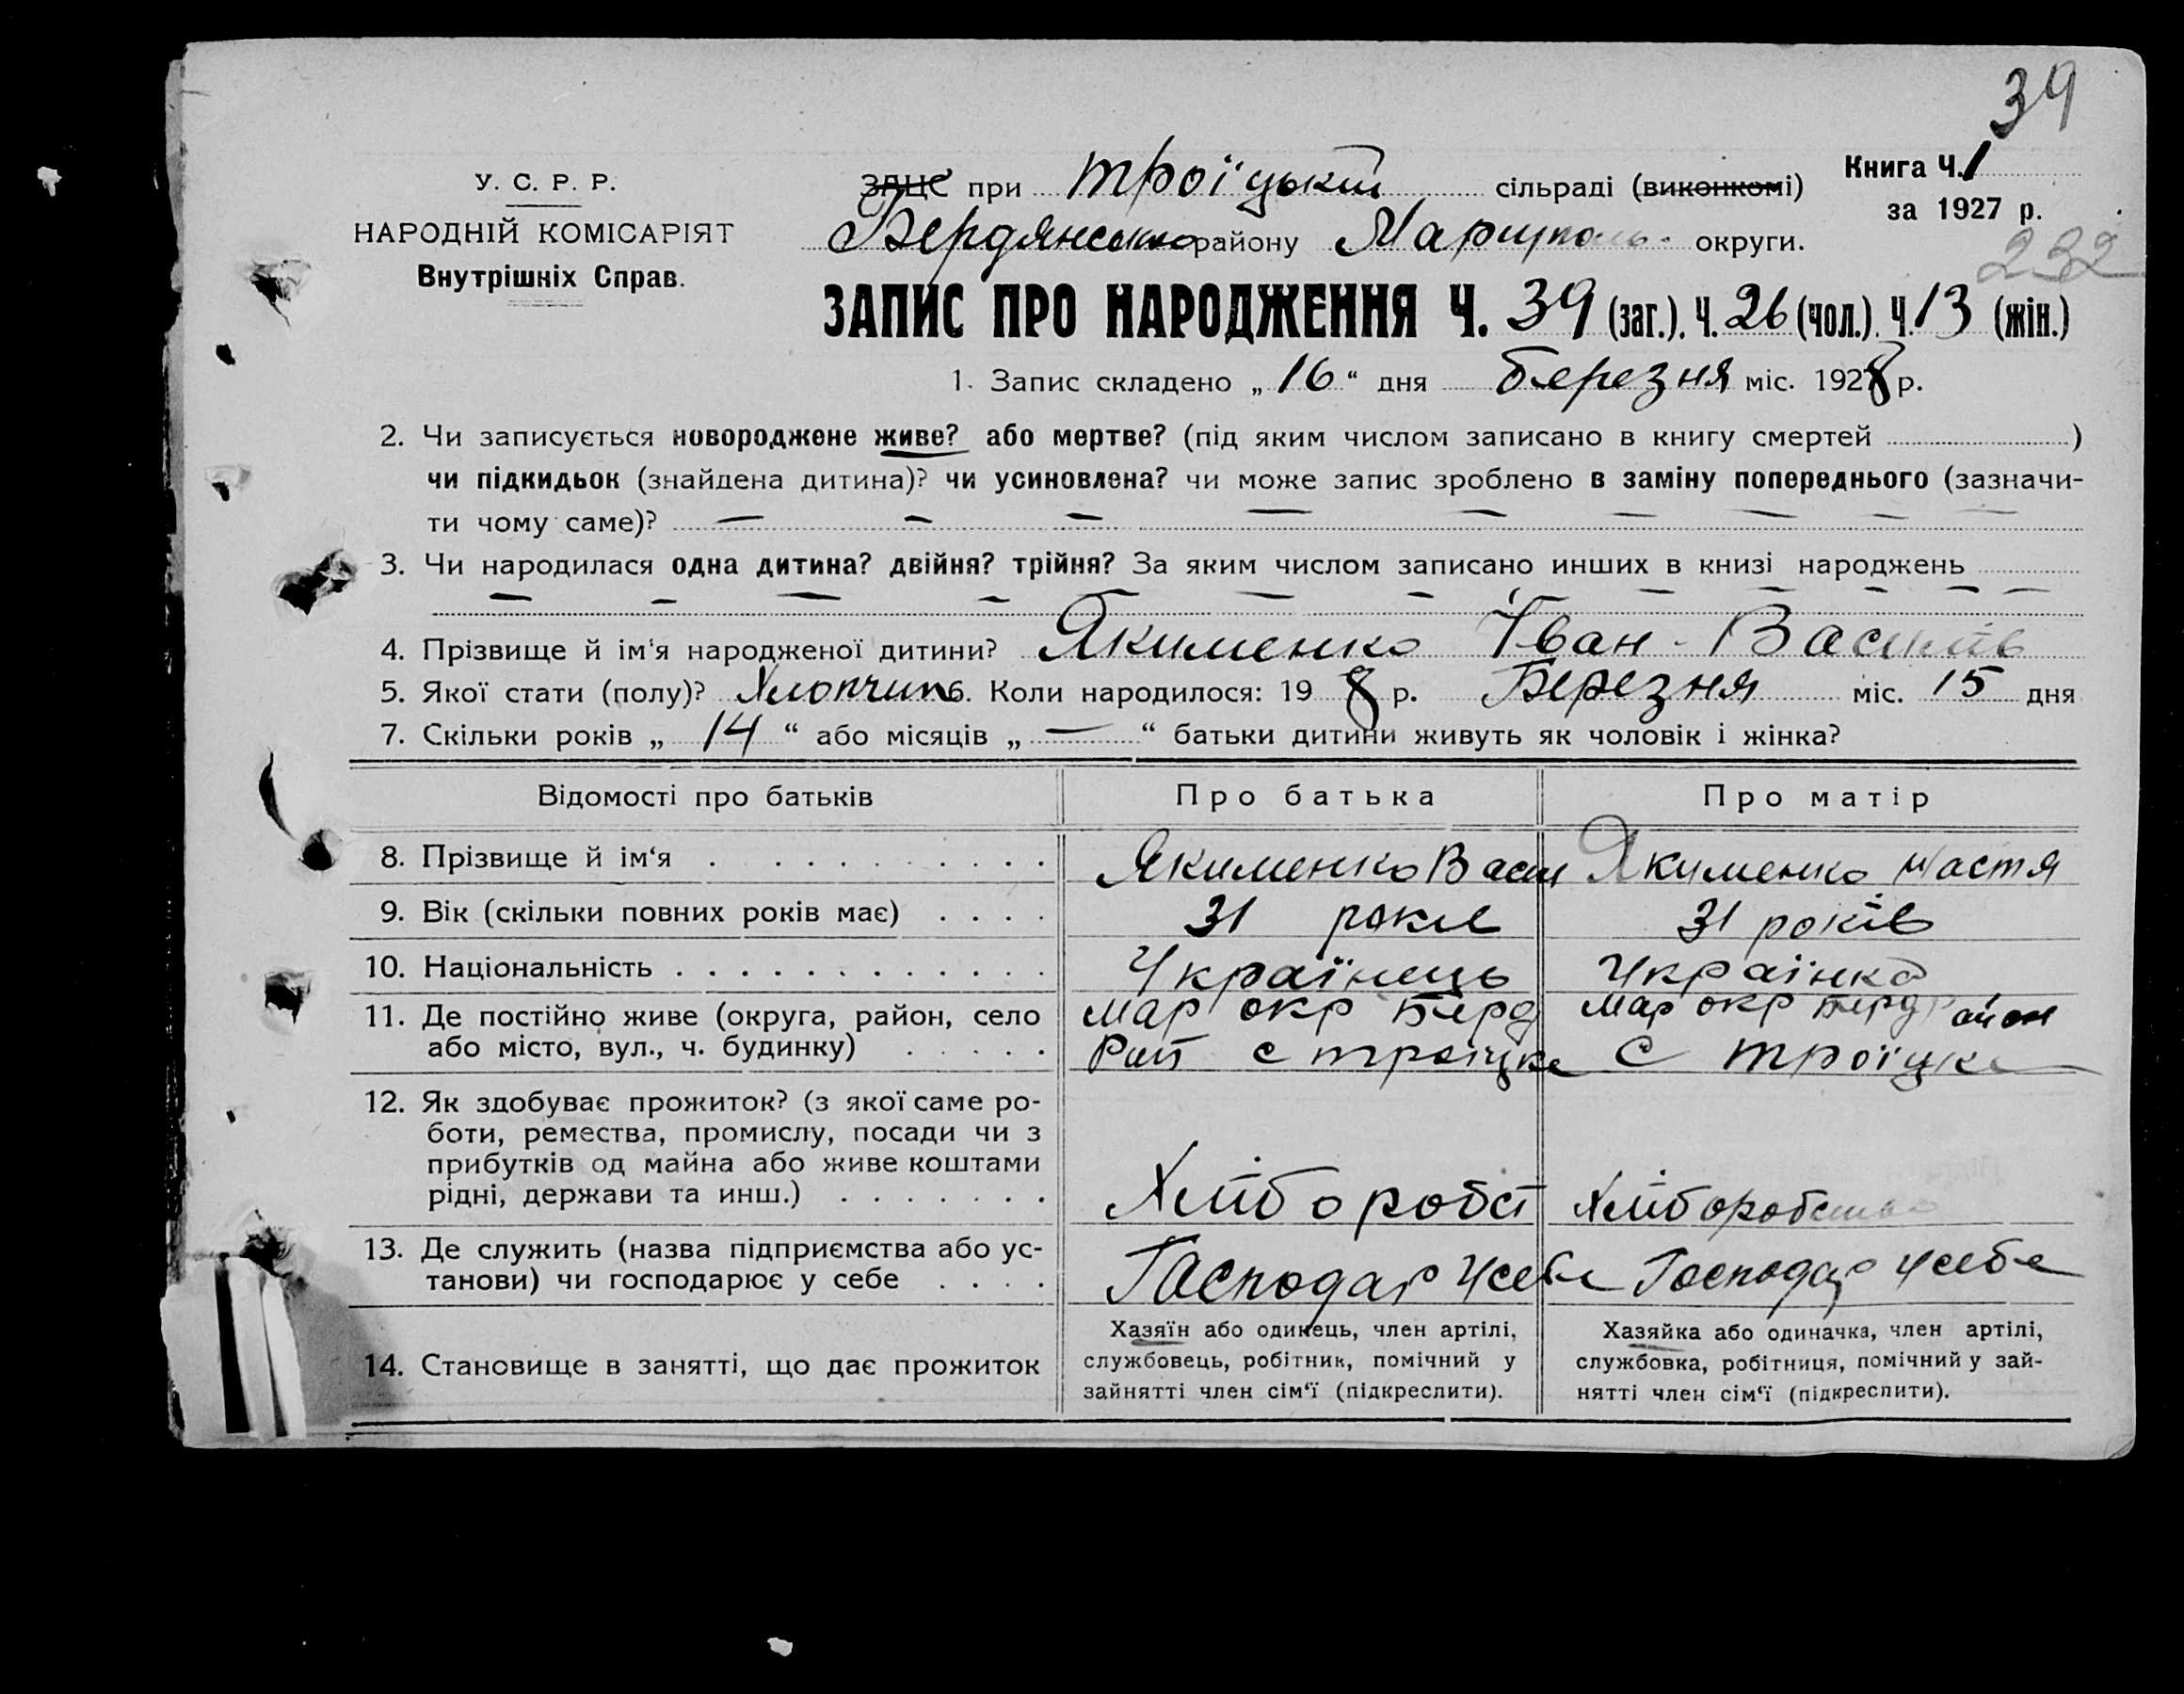 39
У. С. Р. Р.
НАРОДНІЙ КОМІСАРІЯТ
Внутрішніх Справ.
ЗАЦС при Троїцькій сільраді (виконкомі)
Бердянського району Маріуполь. округи.
Книга Ч. 1
за 1927 р.
232
ЗАПИС ПРО НАРОДЖЕННЯ Ч. 39 (заг.). Ч. 26 (чол.). Ч. 13 (жін.)
1. Запис складено „ 16 “ дня березня міс. 1928 р.
2. Чи записується новороджене живе? або мертве? (під яким числом записано в книгу смертей )
чи підкидьок (знайдена дитина)? чи усиновлена? чи може запис зроблено в заміну попереднього (зазначи-
ти чому саме)? — — — — — — — — —
3. Чи народилася одна дитина? двійня? трійня? За яким числом записано инших в книзі народжень
— — — — — — — — — —
4. Прізвище й ім‘я народженої дитини? Якименко Іван - Васиів
5. Якої стати (полу)? Хлопчик 6. Коли народилося: 19 8 р. Березня міс. 15 дня
7. Скільки років „ 14 “ або місяців „ — “ батьки дитини живуть як чоловік і жінка?
Відомості про батьків Про батька Про матір
8. Прізвище й ім‘я Якименко Васи Якименко Настя
9. Вік (скільки повних років має) 31 років 31 років
10. Національність Українець Українка
11. Де постійно живе (округа, район, село Мар окр Берд Мар окр Берд район
або місто, вул., ч. будинку) Рай с Троїцке С Троїцке
12. Як здобуває прожиток? (з якої саме ро-
боти, ремества, промислу, посади чи з
прибутків од майна або живе коштами
рідні, держави та инш.) Хліборобст Хліборобство
13. Де служить (назва підприємства або ус-
танови) чи господарює у себе Господар усебе Господар усебе
14. Становище в занятті, що дає прожиток
Хазяїн або одинець, член артілі,
службовець, робітник, помічний у
зайнятті член сім‘ї (підкреслити).
Хазяйка або одиначка, член артілі,
службовка, робітниця, помічний у зай-
нятті член сім‘ї (підкреслити).